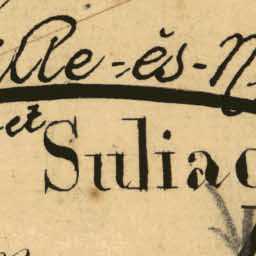 lle-ès-N
et
Suliac